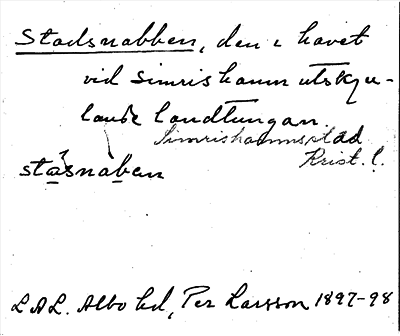 Stadsnabben, den i havet
vid Simrishamn utskju-
tande landtungan.
Simrishamns stad
Krist. l.
stasnaben
L.A.L. Albo hd, Per Larsson 1897-98